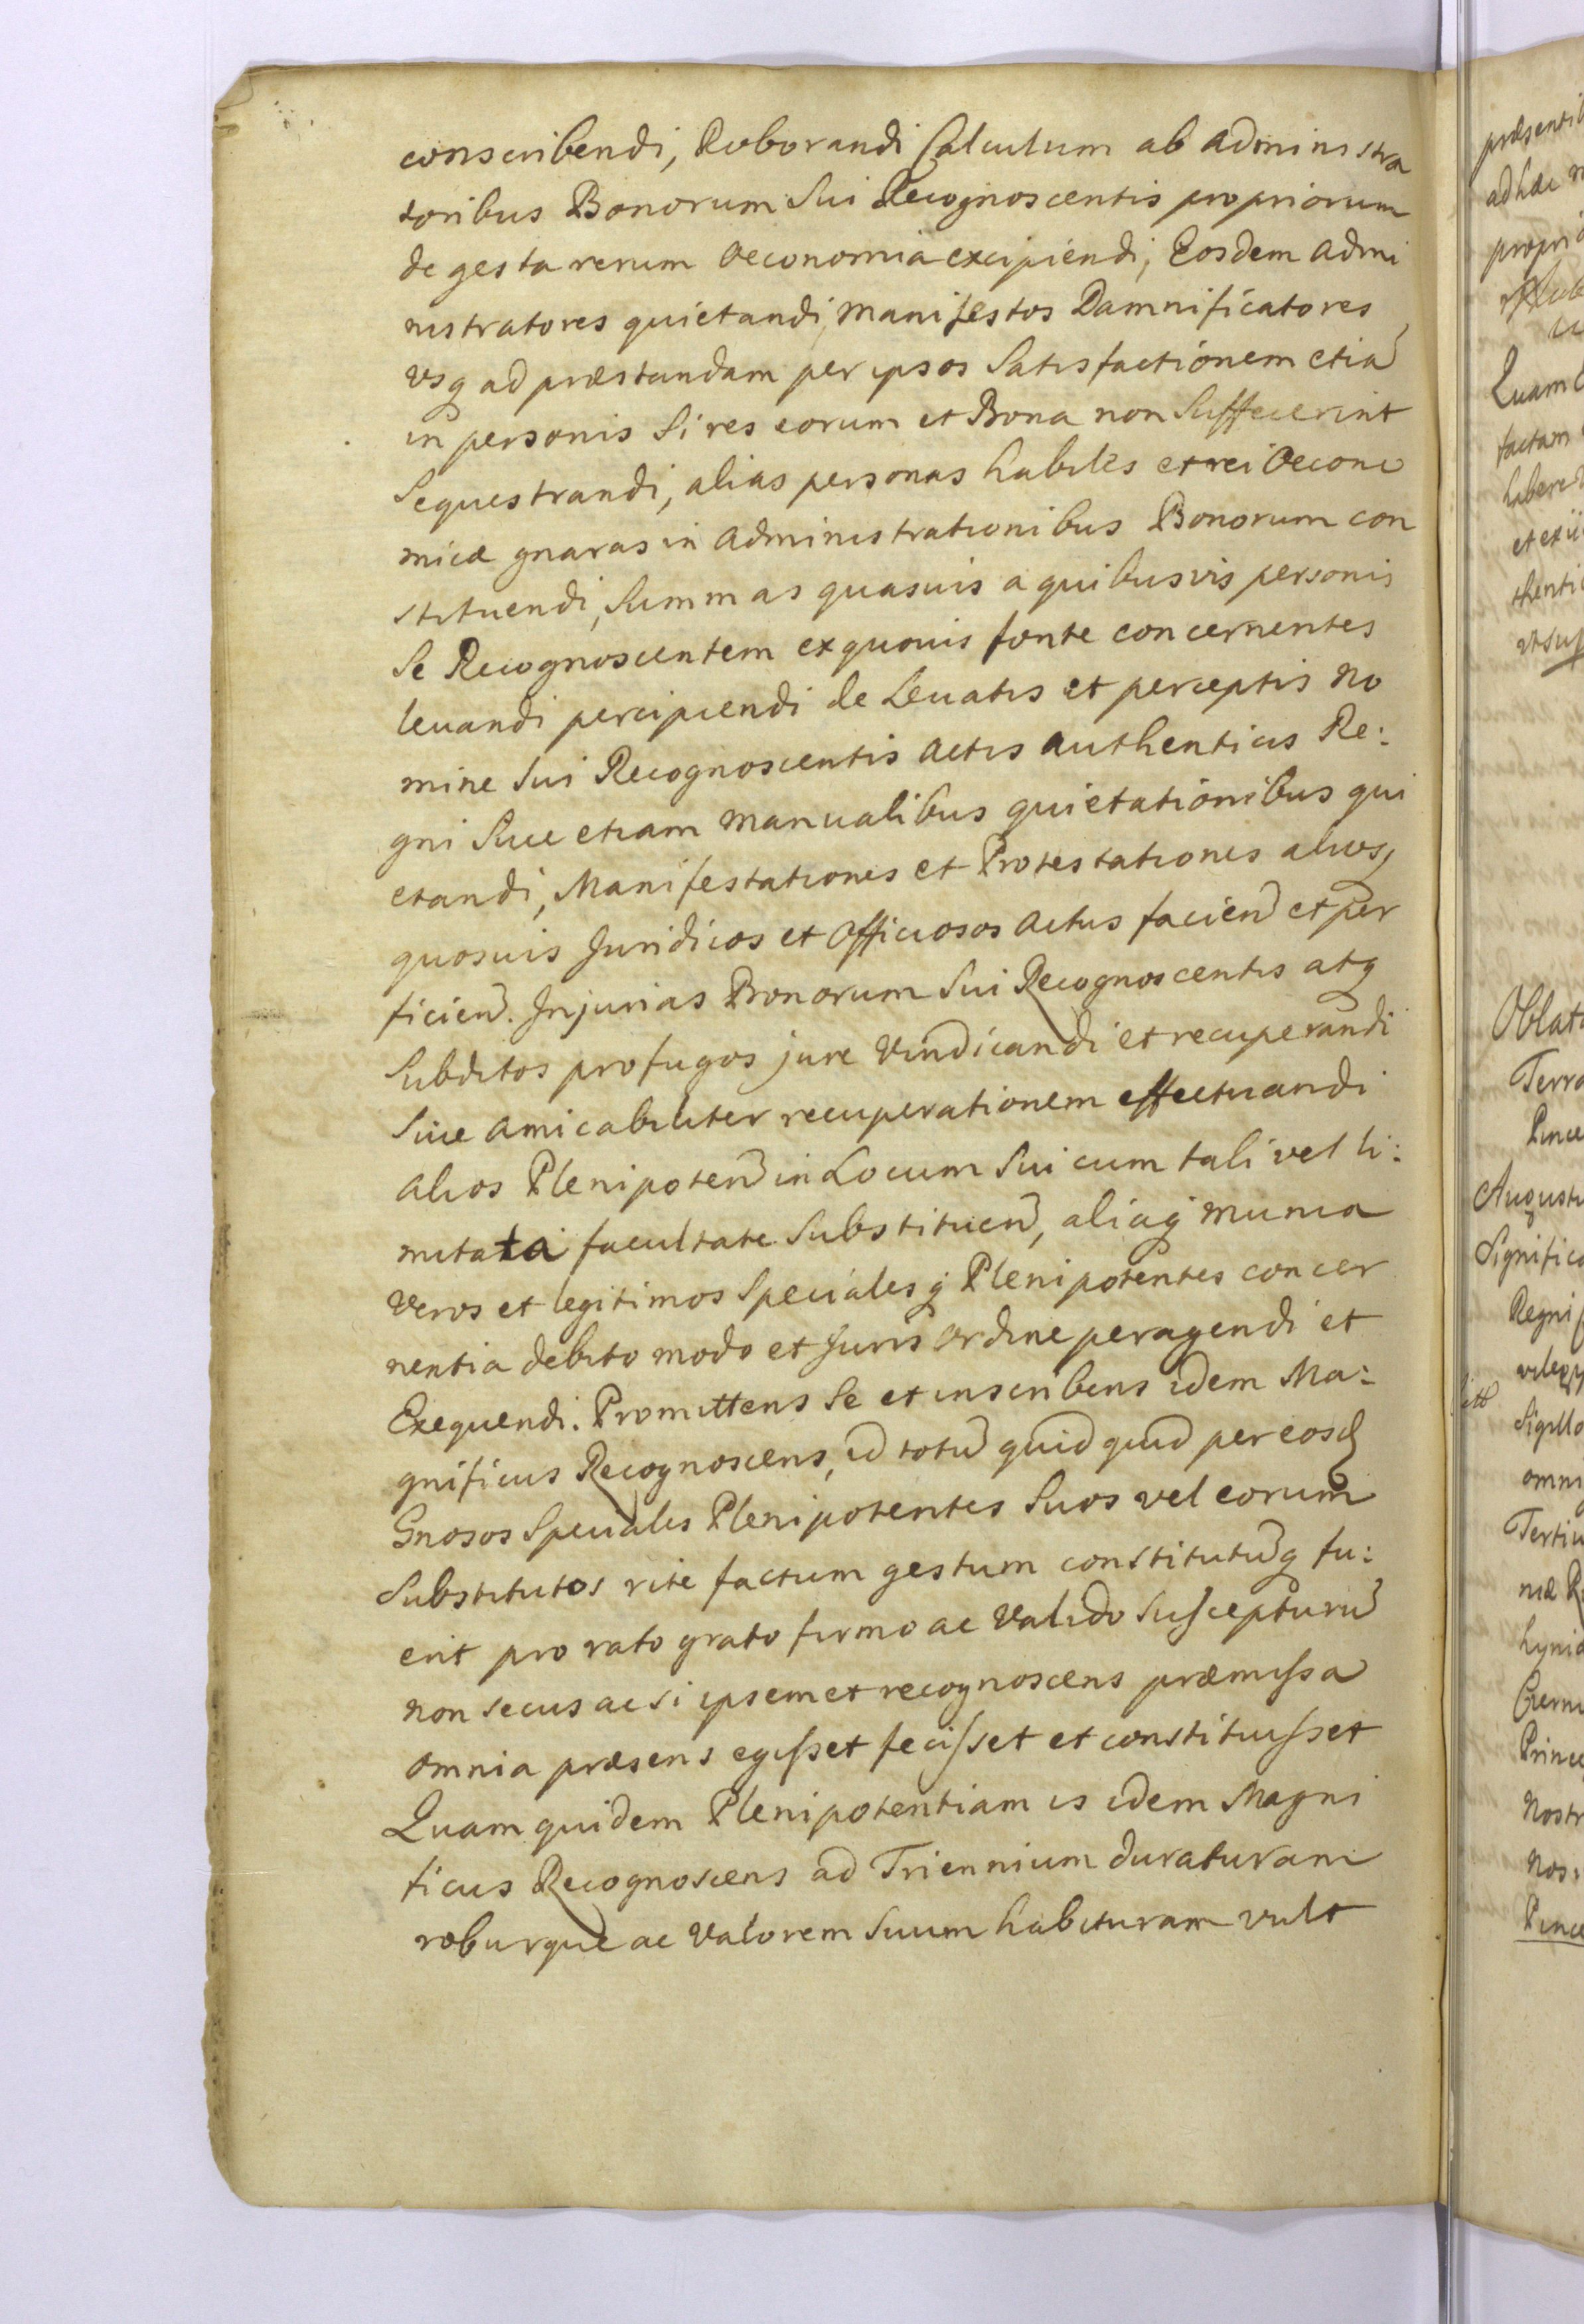 conscribendi, Roborandi Calculum ab administra
toribus Bonorum Sui Recognoscentis propriorum
de gesta rerum Oeconomia excipiendi, Eosdem admi
nistratores quietandi, Manifestos Damnificatores
usq ad præstandam per ipsos Satisfactionem etiã
in personis Si res eorum et Bona non Suffecerint
Sequestrandi, alias personas habiles et rei Oecono
micæ gnaras in administrationibus Bonorum con
stituendi, Summas quasuis a quibusvis personis
Se Recognoscentem exquouis fonte concernentes
leuandi percipiendi de Leuatis et perceptis no
mine Sui Recognoscentis Actis Authenticis Re:
gni Siue etiam Manualibus quietationibus qui
etandi, Manifestationes et Protestationes aliosq
quosuis Juridicos et Officiosos Actus faciend et per
ficiend. Injurias Bonorum Sui Recognoscentis atq
Subditos profugos jure Vindicandi et recuperandi
Siue amicabiliter recuperationem effectuandi
alios Plenipoten in Locum Sui cum tali vel li:
mitata facultate Substituen, aliaq munia
Veros et legitimos Specialesq Plenipotentes concer
nentia debito modo et Juris Ordine peragendi et
Exequendi. Promittens Se et inscribens idem Ma:
gnificus Recognoscens, id totũ quidquid per eosd
Gnosos Speciales Plenipotentes Suos vel eorum
Substitutos rite factum gestum constitutũq fu:
erit pro rato grato firmo ac Valido Suscepturũ
non secus ac si ipsemet recognoscens præmissa
omnia præsens egisset fecisset et constituisset
Quam quidem Plenipotentiam is idem Magni
ficus Recognoscens ad Triennium duraturam
roburque ac Valorem Suum habituram vult